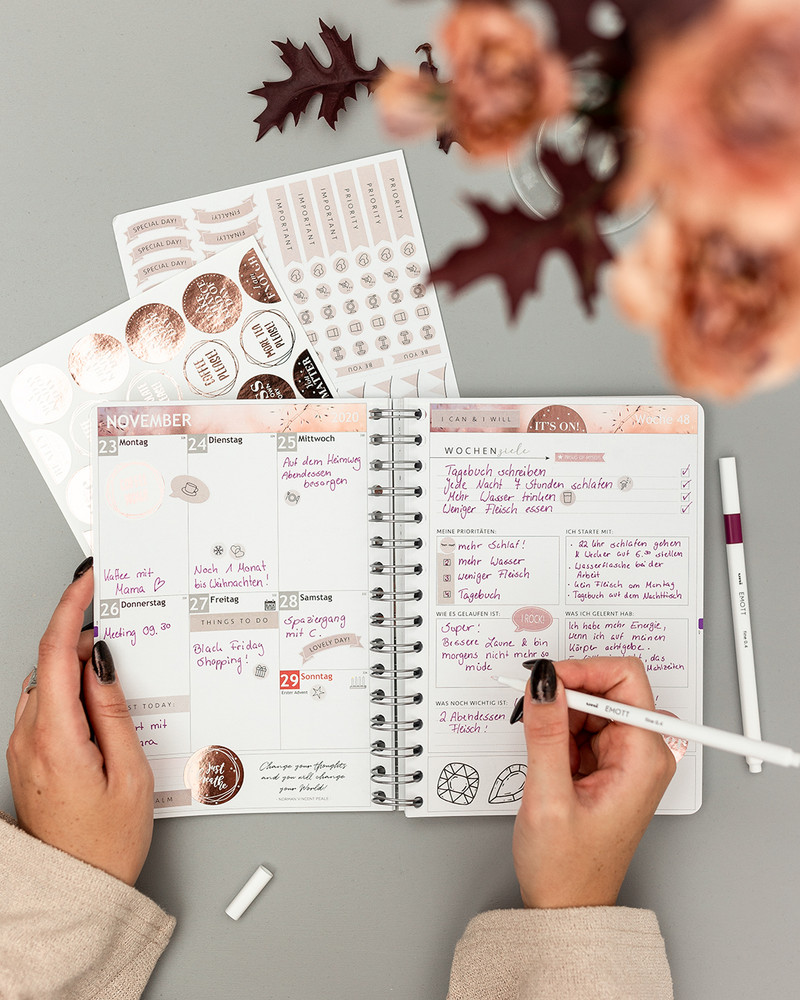 SPECIAL DAY!
SPECIAL DAY!
SPECIAL DAY!
FINALLY!
FINALLY!
IMPORTANT
IMPORTANT
IMPORTANT
PRIORITY
PRIORITY
PRIORITY
BE YOU
BE YOU
COFFEE
PLEASE!
NOVEMBER
2020
23 Montag
24 Dienstag
25 Mittwoch
Auf dem Heimweg
Abendessen
besorgen
Kaffee mit
Mama
Noch 1 Monat
bis Weihnachten!
26 Donnerstag
27 Freitag
28 Samstag
Meeting 09.30
THINGS TO DO
Black Friday
shopping!
spaziergang
mit C.
LOVELY DAY!
29 Sonntag
Erster Advent
ST TODAY
rt mit
ara
ALM
Just
breathe
Change your thoughts
and you will change
your World!
NORMAN VINCENT PEALE
I CAN & I WILL
IT'S ON!
Woche 48
WOCHENziele
Tagebuch schreiben
Jede Nacht 7 Stunden schlafen
Mehr Wasser trinken
Weniger Fleisch essen
MEINE PRIORITÄTEN:
mehr Schlaf!
2 mehr Wasser
3 weniger Fleisch
4 Tagebuch
ICH STARTE MIT:
• 22 Uhr schlafen gehen
& Wecker auf 6.30 stellen
• Wasserflasche bei der
Arbeit
• kein Fleisch am Montag
• Tagebuch auf dem Nachttisch
WIE ES GELAUFEN IST:
I ROCK!
Super!
Bessere Laune & bin
morgens nicht mehr so
müde
WAS ICH GELERNT HAB:
Ich habe mehr Energie,
wenn ich auf meinen
Körper achtgebe.
das
Mahlzeiten
WAS NOCH WICHTIG IST:
2 Abendessen
Fleisch!
uni EMOTT fine 0.4
uni EMOTT fine 0.4